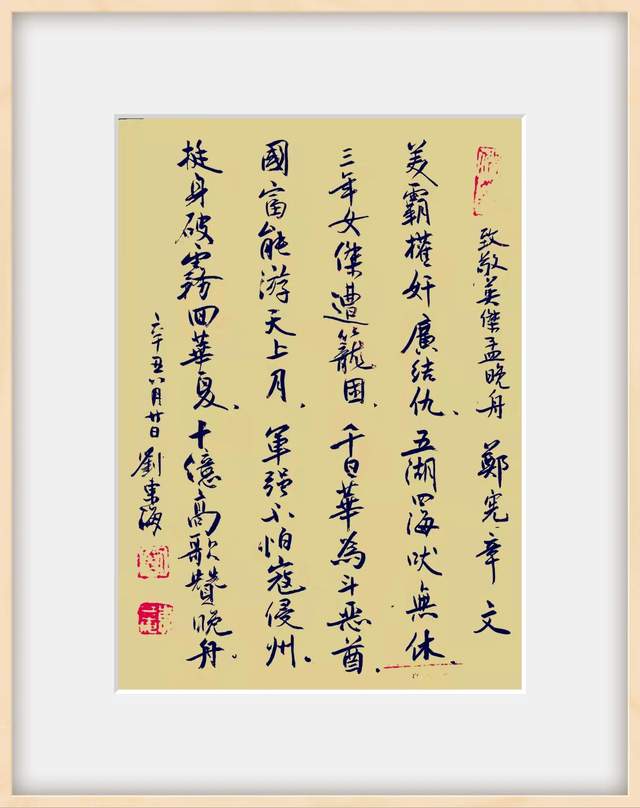 致敬英傑孟晚舟 鄭憲章 文
美霸權奸廣結仇、五湖四海吠無休
三年女傑遭籠困、千日華為斗惡酋.
國富能游天上月、軍强不怕寇侵州.
挺身破霧回華夏、十億高歌贊晚舟。
辛丑八月廿日 劉東海